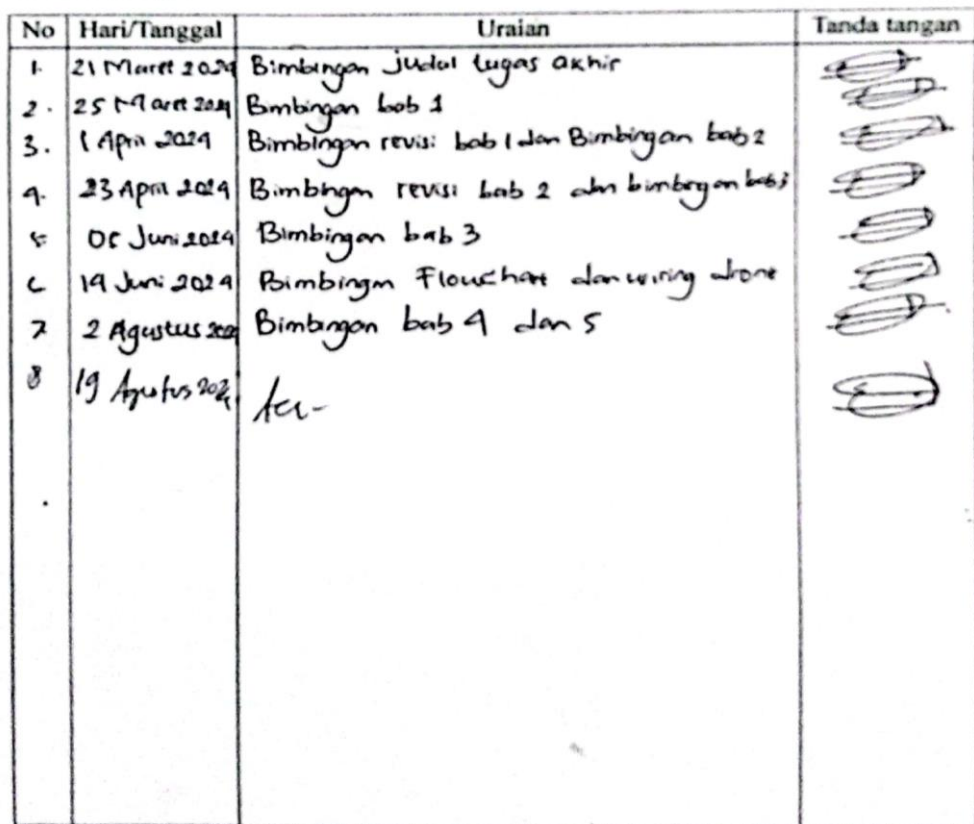 No Hari/Tanggal Uraian Tanda tangan
1. 21 Maret 2024 Bimbingan Judul tugas akhir
2. 25 Maret 2024 Bimbingan bab 1
3. 1 April 2024 Bimbingan revisi bab 1 dan Bimbingan bab 2
4. 23 April 2024 Bimbingan revisi bab 2 dan bimbingan bab 3
5 05 Juni 2024 Bimbingan bab 3
6 14 Juni 2024 Bimbingan Flouchart dan wiring drone
7 2 Agustus 2024 Bimbingan bab 4 dan 5
8 19 Agustus 2024